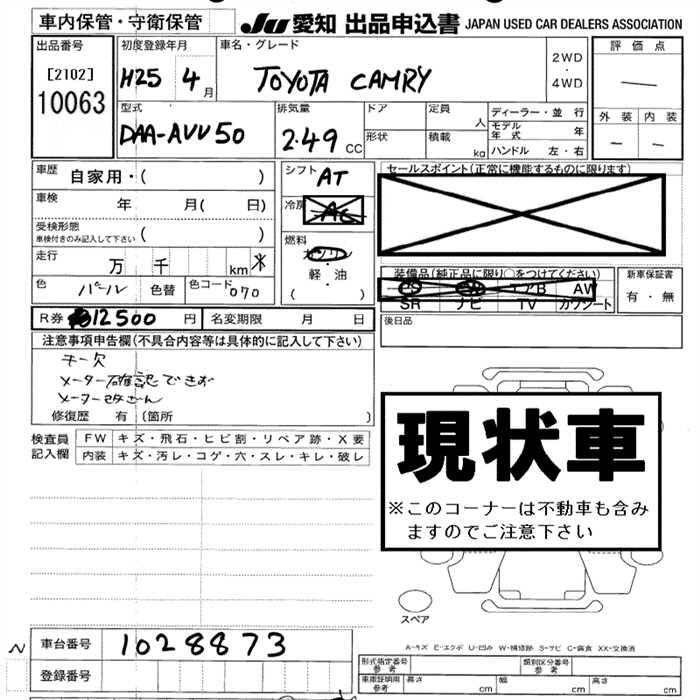 車内保管・守衛保管
JU 愛知 出品申込書 JAPAN USED CAR DEALERS ASSOCIATION
出品番号
[2102]
10063
初度登録年月
H25 4月
車名・グレード
TOYOTA CAMRY
2WD
・
4WD
評価点
—
外装 内装
— —
型式
DAA-AVV50
排気量
2.49 CC
ドア
形状
定員 人
積載 kg
ディーラー・並行
モデル年式 年
ハンドル 左・右
車歴
自家用・( )
車検 年 月( 日)
受検形態
車検付きのみ記入して下さい ( )
走行 万 千 km *
色 パール 色替 色コード 070
シフト AT
冷房 AC
燃料
ガソリン
軽・油
( )
セールスポイント(正常に機能するものに限ります)
装備品(純正品に限り○をつけてください)
PS PW エアB AW
SR ナビ TV カワシート
新車保証書
有・無
R券 12500 円 名変期限 月 日
後日品
注意事項申告欄(不具合内容等は具体的に記入して下さい)
キー欠
メーター確認できず
メーター改ざん
修復歴 有 (箇所 )
検査員
記入欄
FW キズ・飛石・ヒビ割・リペア跡・X要
内装 キズ・汚レ・コゲ・穴・スレ・キレ・破レ
現状車
※このコーナーは不動車も含み
ますのでご注意下さい
スペア
A-キズ E-エクボ U-凹み W-補修跡 S-サビ C-腐食 XX-交換済
車台番号 1028873
登録番号
型式指定番号
参考
類別区分番号
参考
車庫証明用
参考
長さ cm 幅 cm 高さ cm